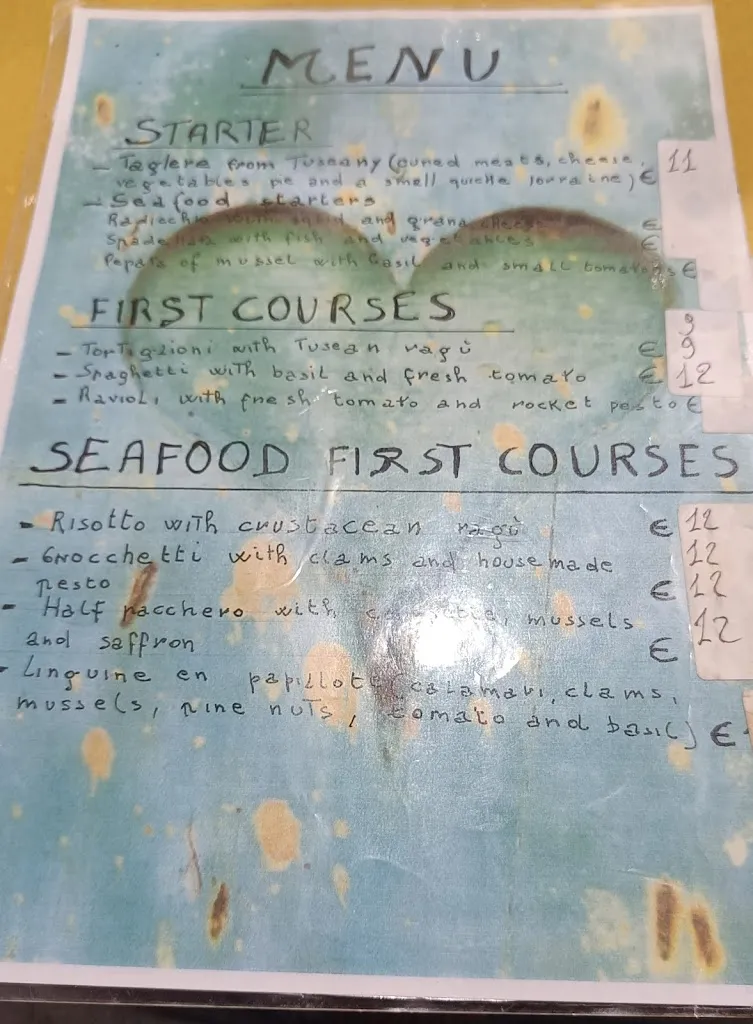 MENU
STARTER
- Taglere from Tuscany (cured meats, cheese,
vegetables pie and a small quiche lorraine) € 11
- Seafood starters
Radicchio with squid and grana cheese €
with fish and vegetables €
Pepata of mussel with basil and small tomatoes €
FIRST COURSES
9
- Tortiglioni with Tuscan ragù € 9
- Spaghetti with basil and fresh tomato € 12
- Ravioli with fresh tomato and rocket pesto €
SEAFOOD FIRST COURSES
- Risotto with crustacean ragù € 12
- Gnocchetti with clams and housemade 12
pesto € 12
- Half pacchero with mussels 12
and saffron €
- Linguine en papillote (calamari, clams,
mussels, pine nuts, tomato and basil) €